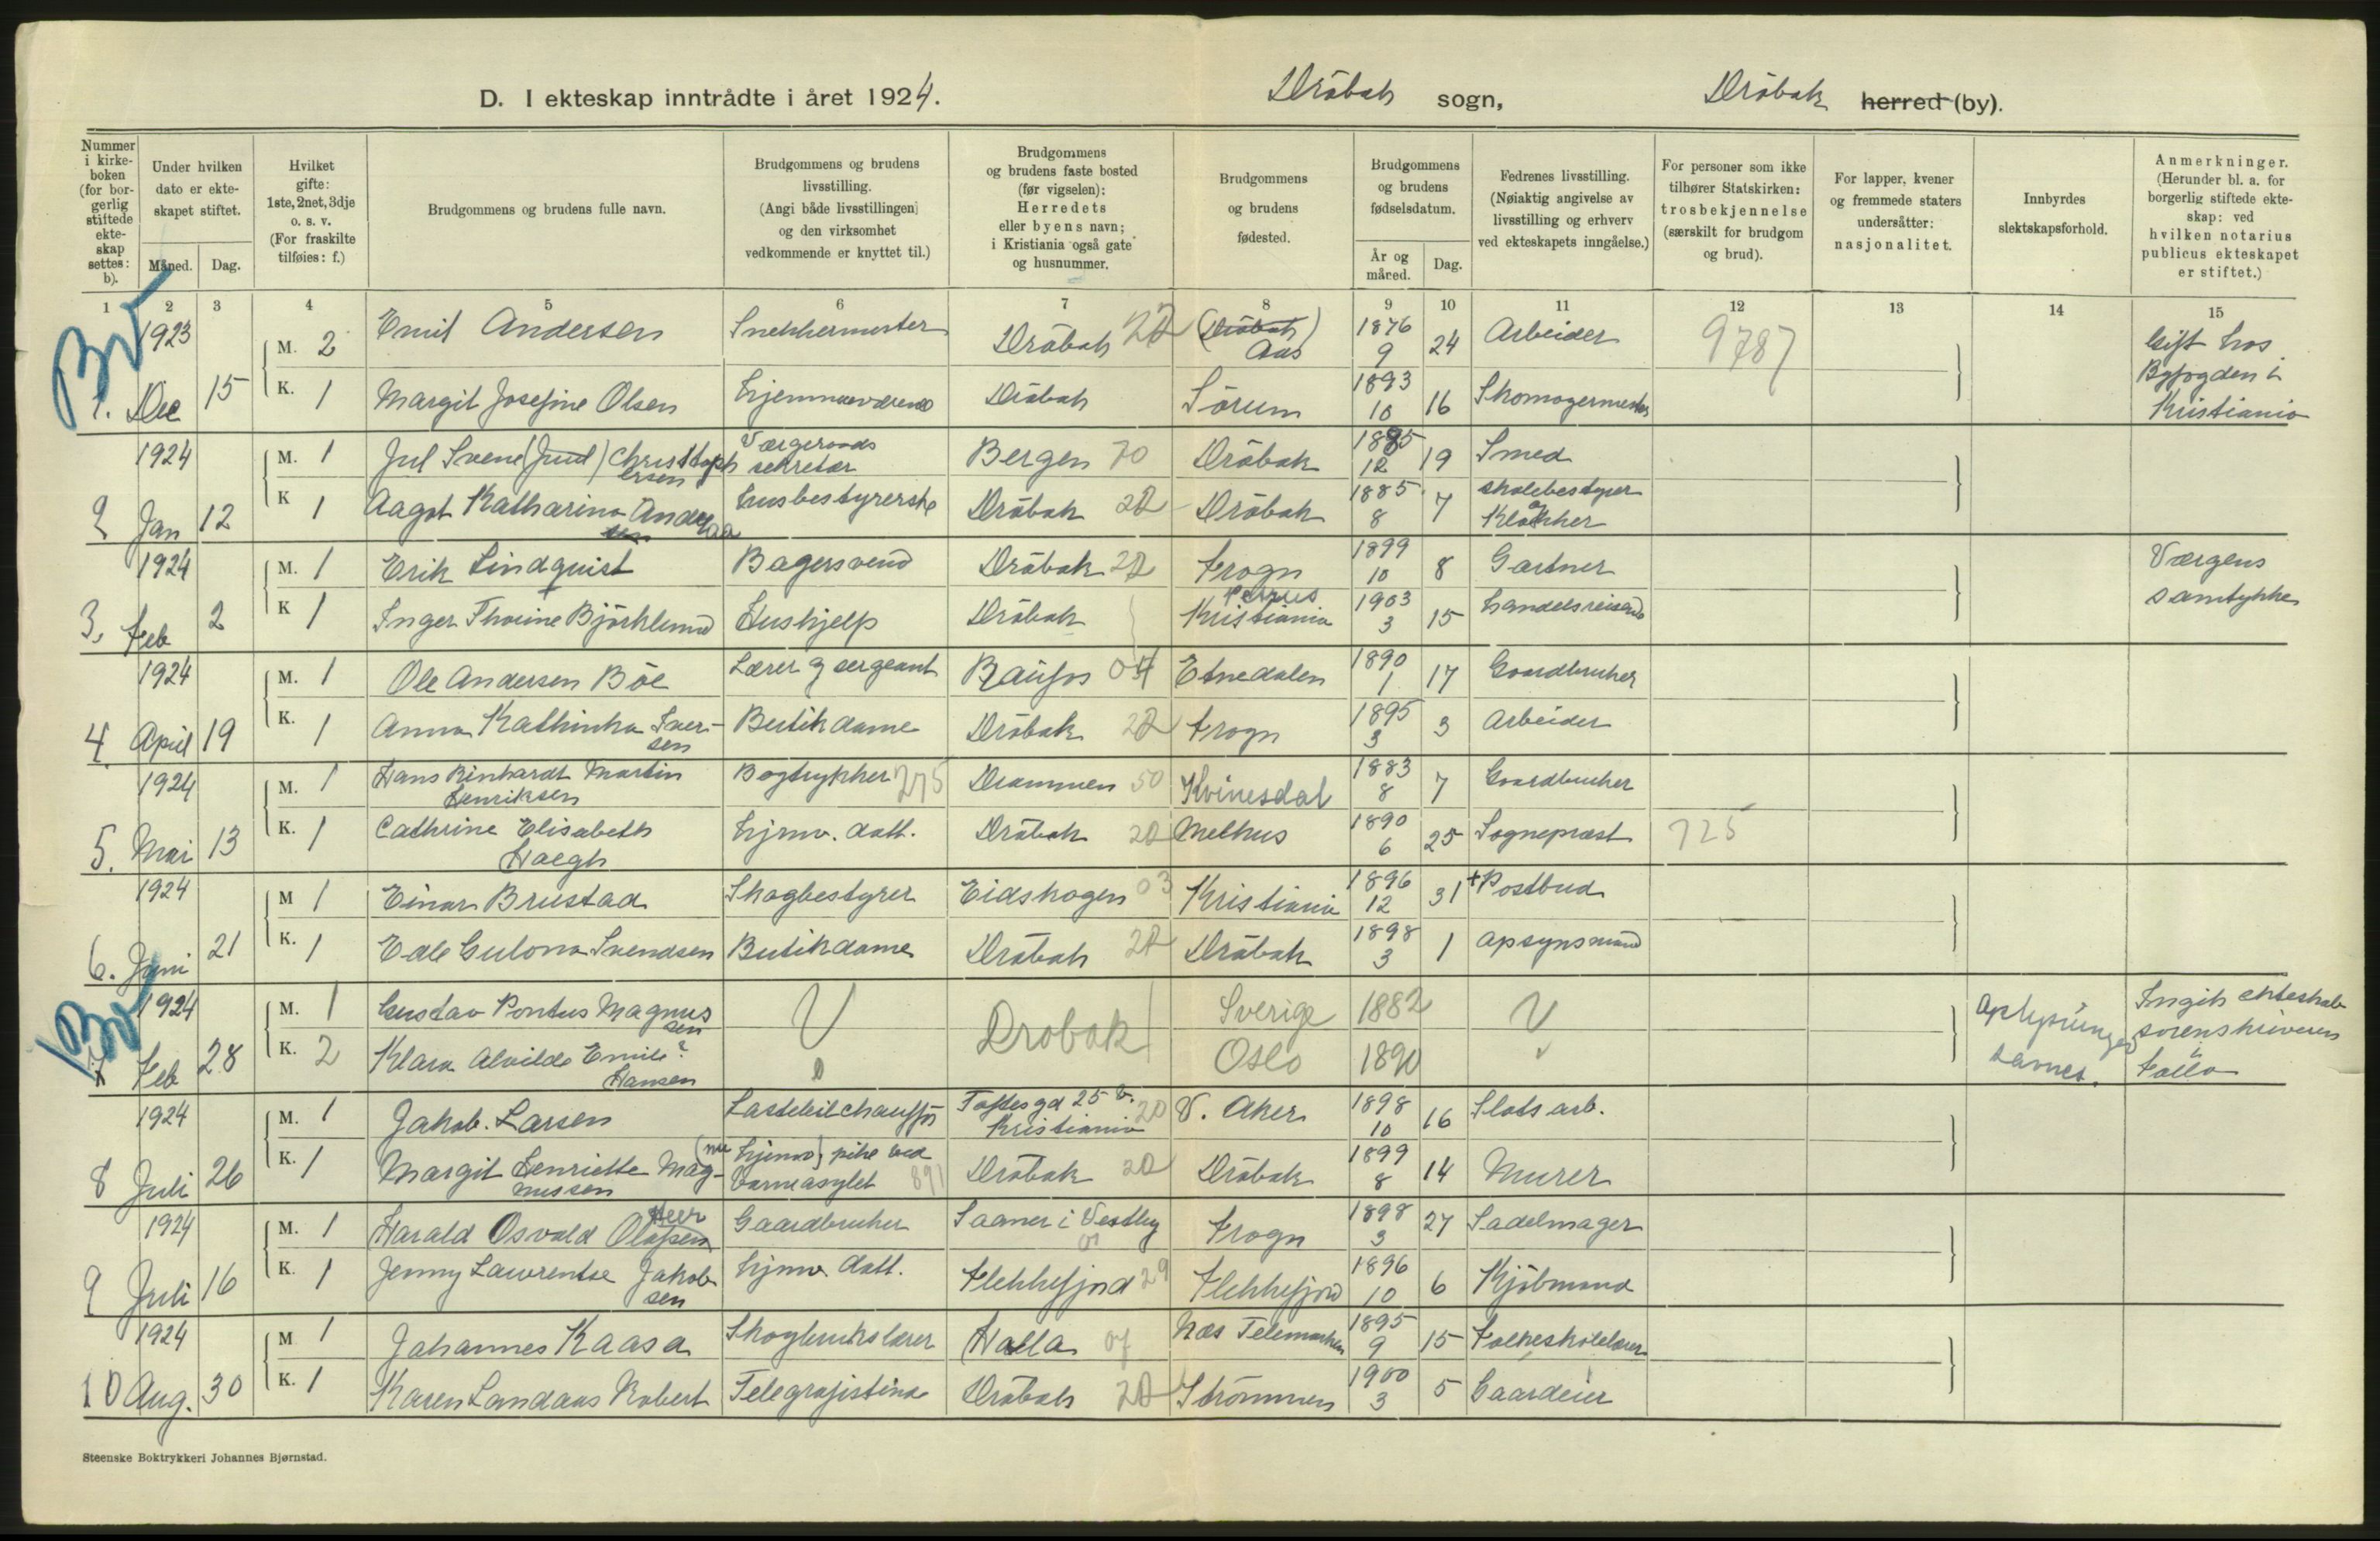 D. I ekteskap inntrådte i året 1924. Dröbak sogn, Dröbak herred (by).
Nummer i kirke-boken (for bor-gerlig stiftede ekte-skap settes: b).
Under hvilken dato er ekte-skapet stiftet.
Måned. Dag.
Hvilket gifte: 1ste, 2net, 3dje o. s. v. (For fraskilte tilføies: f.)
Brudgommens og brudens fulle navn.
Brudgommens og brudens livsstilling. (Angi både livsstillingen og den virksomhet vedkommende er knyttet til.)
Brudgommens og brudens faste bosted (før vigselen): Herredets eller byens navn; i Kristiania også gate og husnummer.
Brudgommens og brudens fødested.
Brudgommens og brudens fødselsdatum.
År og måned. Dag.
Fedrenes livsstilling. (Nøiaktig angivelse av livsstilling og erhverv ved ekteskapets inngåelse.)
For personer som ikke tilhører Statskirken: trosbekjennelse (særskilt for brudgom og brud).
For lapper, kvener og fremmede staters undersåtter: nasjonalitet.
Innbyrdes slektskapsforhold.
Anmerkninger. (Herunder bl. a. for borgerlig stiftede ekte-skap: ved hvilken notarius publicus ekteskapet er stiftet.)
1 2 3 4 5 6 7 8 9 10 11 12 13 14 15
Bv
1923 M. 2 Emil Andersen Snekkermester Dröbak 22 (Dröbak) Aas 1876 9 24 Arbeider 9787 Gift hos
1. Dec 15 K. 1 Margit Josefine Olsen Hjemmeværende Dröbak Sörum 1893 10 16 Skomagermester Byfogden i
Kristiania
1924 M. 1 Jul Svene (Juul) Christophersen Værgeraads sekretær Bergen 70 Dröbak 1885 12 19 Smed
2 Jan 12 K 1 Aagot Katharina Husbestyrerske Dröbak 22 Dröbak 1885 8 7 Skolebestyrer og Klokker
1924 M. 1 Erik Lindquist Bagersvend Dröbak 22 Frogn 1899 10 8 Gartner Værgens
3. Feb 2 K 1 Inger Thorine Björklund Hushjelp Dröbak Kristiania 1903 3 15 Handelsreisende samtykke
1924 M. 1 Ole Andersen Böe Lærer og sergeant Raufos 04 Etnedalen 1890 1 17 Gaardbruker
4. April 19 K. 1 Anna Kathinka Iversen Butikdame Dröbak 22 Frogn 1895 3 3 Arbeider
1924 M. 1 Hans Rinhardt Martin Henriksen Bogtrykker 275 Drammen 50 Kvinesdal 1883 8 7 Gaardbruker
5. Mai 13 K. 1 Cathrine Elisabeth Haegh hjmv. datt. Dröbak 22 Melhus 1890 6 25 Sogneprest 725
1924 M 1 Einar Brustad Skogbestyrer Eidskogen 03 Kristiania 1896 12 31 +Postbud
6. Juni 21 K. 1 Edle Gulona Svendsen Butikdame Dröbak 22 Dröbak 1898 3 1 Opsynsmand
Bv
1924 M. 1 Gustav Pontus Magnussen Drobak Sverige 1882 Oplysninger savnes. Ingik ekteskab
7 Feb 28 K. 2 Klara Alvilde Emilie? Hansen Oslo 1890 sorenskriveren i Follo
1924 M. 1 Jakob Larsen Lastebilchaufför Toftesgd 25 b. Kristiania 20 V. Aker 1898 10 16 Slotsarb.
8 Juli 26 K. 1 Margit Henriette Magnussen (nu hjemv) pike ved Barneasylet 891 Dröbak 22 Dröbak 1899 8 14 Murer
1924 M. 1 Harald Osvald Olafsen Heer Gaardbruker Saaner i Vestby 01 Frogn 1898 3 27 Sadelmager
9 Juli 16 K. 1 Jenny Laurentse Jakobsen hjmv. datt. Flekkefjord 29 Flekkefjord 1896 10 6 Kjöbmand
1924 M 1 Johannes Kaasa Skogbrukslærer Holla 07 Næs Telemarken 1895 9 15 Folkeskolelærer
10 Aug. 30 K. 1 Karen Landaas Robert Telegrafistinne Dröbak 22 Strömmen 1900 3 5 Gaardeier
Steenske Boktrykkeri Johannes Bjørnstad.